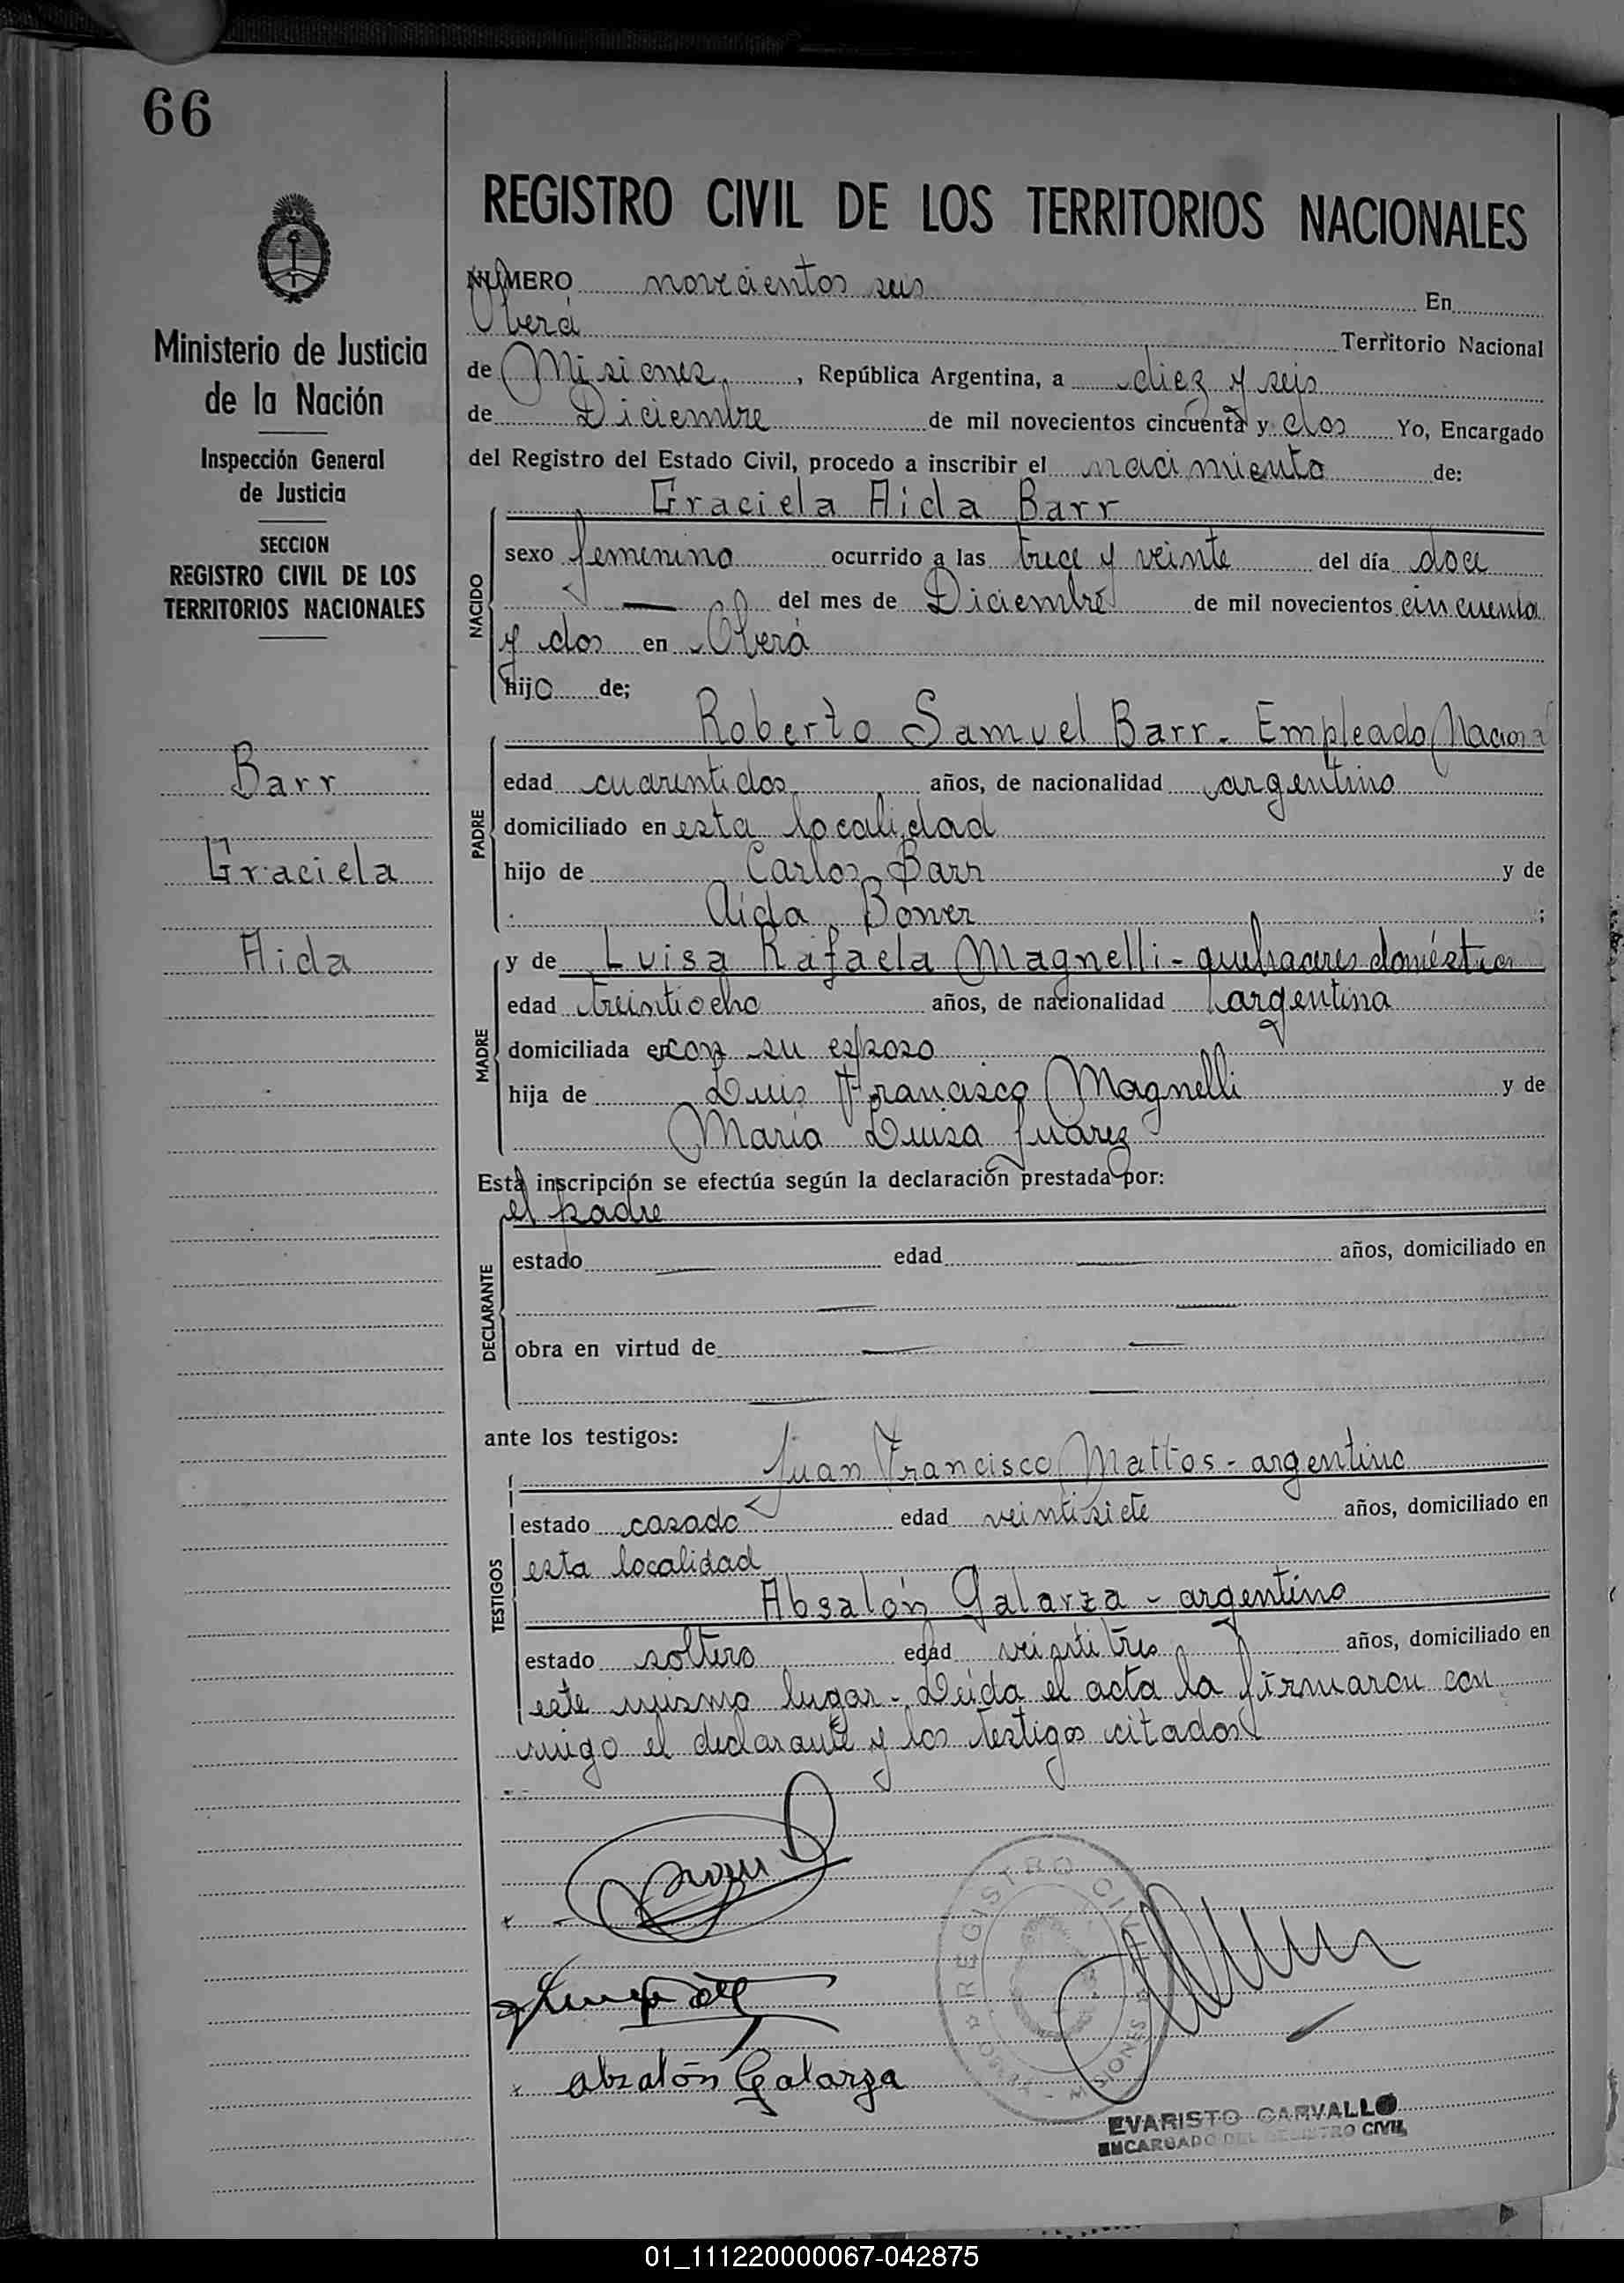 66
Ministerio de Justicia
de la Nación
Inspección General
de Justicia
SECCION
REGISTRO CIVIL DE LOS
TERRITORIOS NACIONALES
Barr
Graciela
Aida
REGISTRO CIVIL DE LOS TERRITORIOS NACIONALES
NUMERO novecientos seis En
Oberá Territorio Nacional
de Misiones, República Argentina, a diez y seis
de Diciembre de mil novecientos cincuenta y dos Yo, Encargado
del Registro del Estado Civil, procedo a inscribir el nacimiento de:
Graciela Aida Barr
NACIDO
sexo femenino ocurrido a las trece y veinte del día doce
— del mes de Diciembre de mil novecientos cincuenta
y dos en Oberá
hijo de;
Roberto Samuel Barr - Empleado Nacional
PADRE
edad cuarentidos años, de nacionalidad argentino
domiciliado en esta localidad
hijo de Carlos Barr y de
Aida Bower ;
MADRE
y de Luisa Rafaela Magnelli - quehaceres domésticos
edad treintiocho años, de nacionalidad argentina
domiciliada en con su esposo
hija de Luis Francisco Magnelli y de
María Luisa Juárez
Esta inscripción se efectúa según la declaración prestada por:
el padre
DECLARANTE
estado — edad — años, domiciliado en
— —
obra en virtud de — —
— —
ante los testigos:
Juan Francisco Mattos - argentino
TESTIGOS
estado casado edad veintisiete años, domiciliado en
esta localidad
Absalón Galarza - argentino
estado soltero edad veintitres años, domiciliado en
este mismo lugar - Leida el acta la firmaron con
migo el declarante y los testigos citados
absalón Galarza
REGISTRO CIVIL
MISIONES
EVARISTO CARVALLO
ENCARGADO DEL REGISTRO CIVIL
01_111220000067-042875